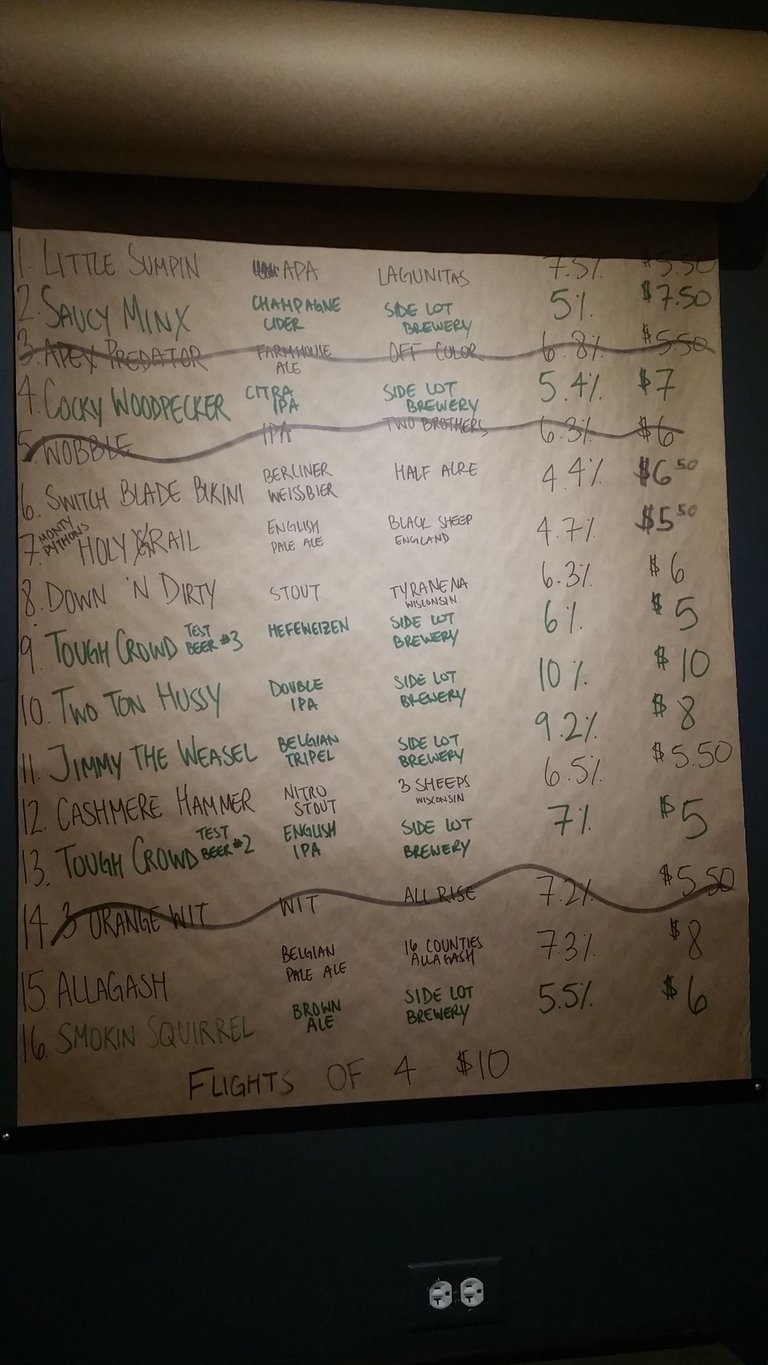 1. LITTLE SUMPIN APA LAGUNITAS 7.5% $5.50
2. SAUCY MINX CHAMPAGNE CIDER SIDE LOT BREWERY 5% $7.50
3. APEX PREDATOR FARMHOUSE ALE OFF COLOR 6.8% $5.50
4. COCKY WOODPECKER CITRA IPA SIDE LOT BREWERY 5.4% $7
5. WOBBLE IPA TWO BROTHERS 6.3% $6
6. SWITCH BLADE BIKINI BERLINER WEISSBIER HALF ACRE 4.4% $6 50
7. MONTY PYTHON'S HOLY GRAIL ENGLISH PALE ALE BLACK SHEEP ENGLAND 4.7% $5 50
8. DOWN 'N DIRTY STOUT TYRANENA WISCONSIN 6.3% $6
9. TOUGH CROWD TEST BEER #3 HEFEWEIZEN SIDE LOT BREWERY 6% $5
10. TWO TON HUSSY DOUBLE IPA SIDE LOT BREWERY 10% $10
11. JIMMY THE WEASEL BELGIAN TRIPEL SIDE LOT BREWERY 9.2% $8
12. CASHMERE HAMMER NITRO STOUT 3 SHEEPS WISCONSIN 6.5% $5.50
13. TOUGH CROWD TEST BEER #2 ENGLISH IPA SIDE LOT BREWERY 7% $5
14 3 ORANGE WIT WIT ALL RISE 7.2% $5.50
15 ALLAGASH BELGIAN PALE ALE 16 COUNTIES ALLAGASH 7.3% $8
16. SMOKIN SQUIRREL BROWN ALE SIDE LOT BREWERY 5.5% $6
FLIGHTS OF 4 $10